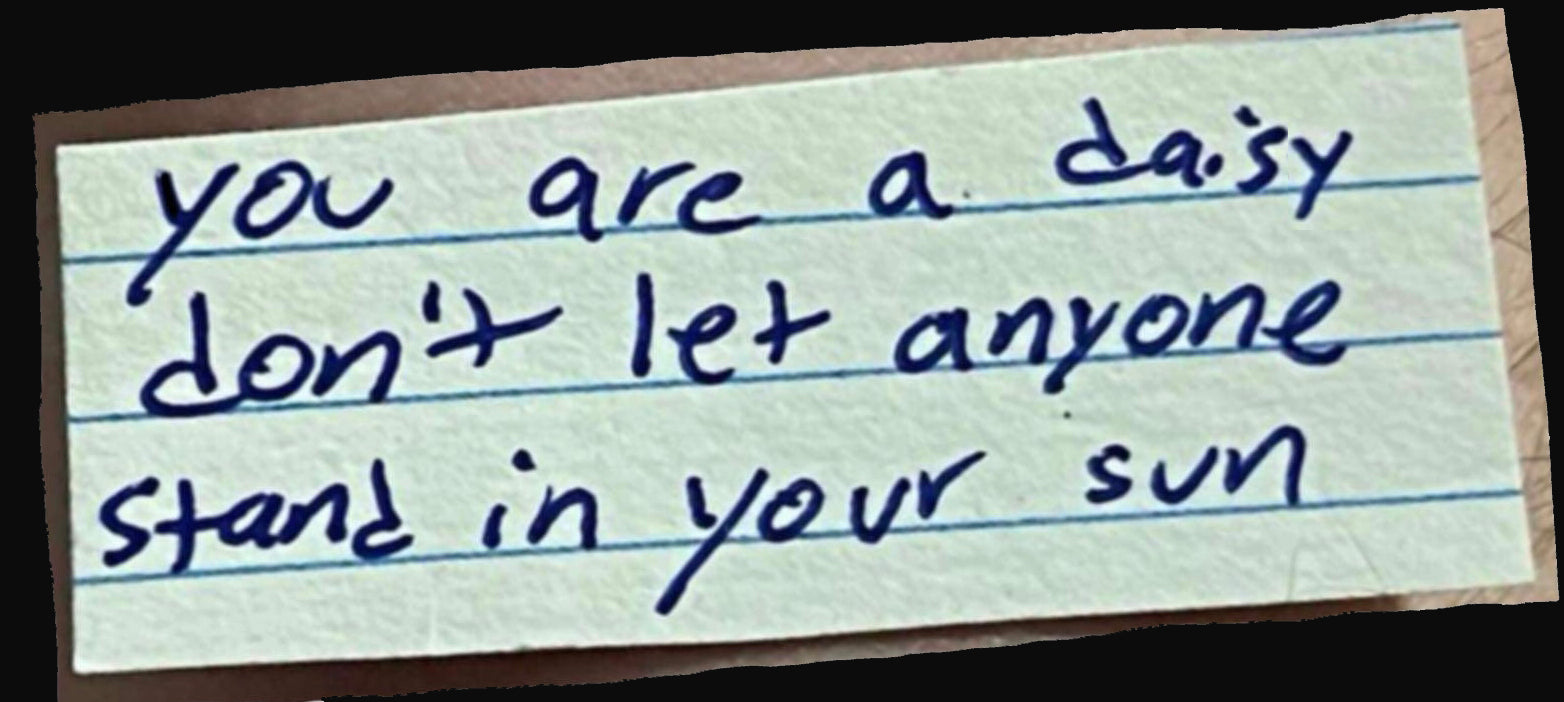 you are a daisy
don't let anyone
stand in your sun